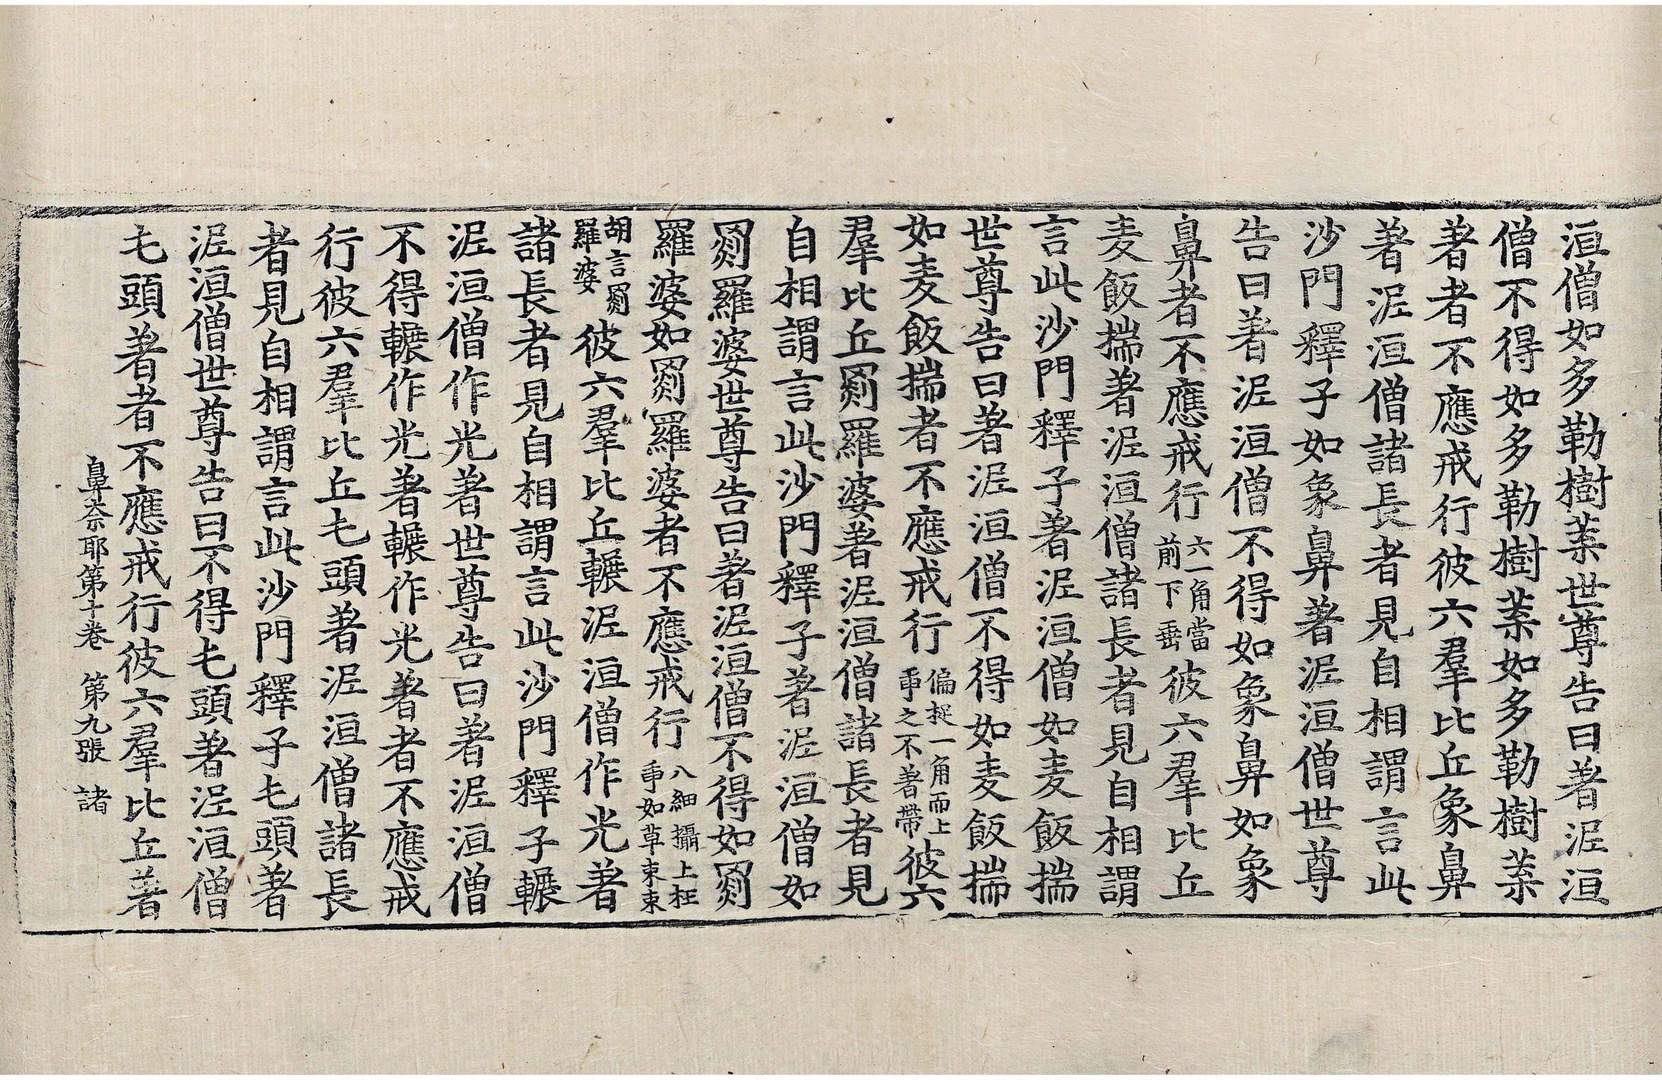 洹僧如多勒樹葉世尊告曰著泥洹
僧不得如多勒樹葉如多勒樹葉
著者不應戒行彼六羣比丘象鼻
著泥洹僧諸長者見自相謂言此
沙門釋子如象鼻著泥洹僧世尊
告曰著泥洹僧不得如象鼻如象
鼻者不應戒行六一角當前下垂彼六羣比丘
麦飯揣著泥洹僧諸長者見自相謂
言此沙門釋子著泥洹僧如麦飯揣
世尊告曰著泥洹僧不得如麦飯揣
如麦飯揣者不應戒行偏捉一角而上牽之不著帶彼六
羣比丘罽羅婆著泥洹僧諸長者見
自相謂言此沙門釋子著泥洹僧如
罽羅婆世尊告曰著泥洹僧不得如罽
羅婆如罽羅婆者不應戒行八細攝上枉牽如草束束
胡言罽羅婆彼六羣比丘輾泥洹僧作光著
諸長者見自相謂言此沙門釋子輾
泥洹僧作光著世尊告曰著泥洹僧
不得輾作光著輾作光著者不應戒
行彼六羣比丘乇頭著泥洹僧諸長
者見自相謂言此沙門釋子乇頭著
泥洹僧世尊告曰不得乇頭著泥洹僧
乇頭著者不應戒行彼六羣比丘著
鼻柰耶第十卷 第九張 諸